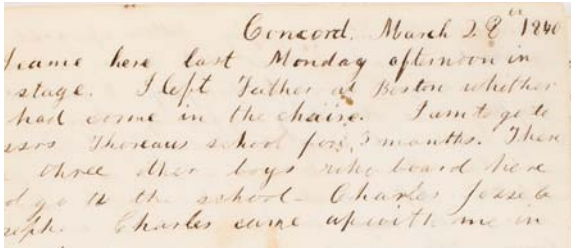 Concord. March 28th 1840
I came here last Monday afternoon in
stage. I left Father at Boston whether
had come in the chaise. I am to go to
ssrs Thoreaus school for 3 months. There
three other boys who board here
d go to the school- Charles Jesse &
seph. Charles came up with me in